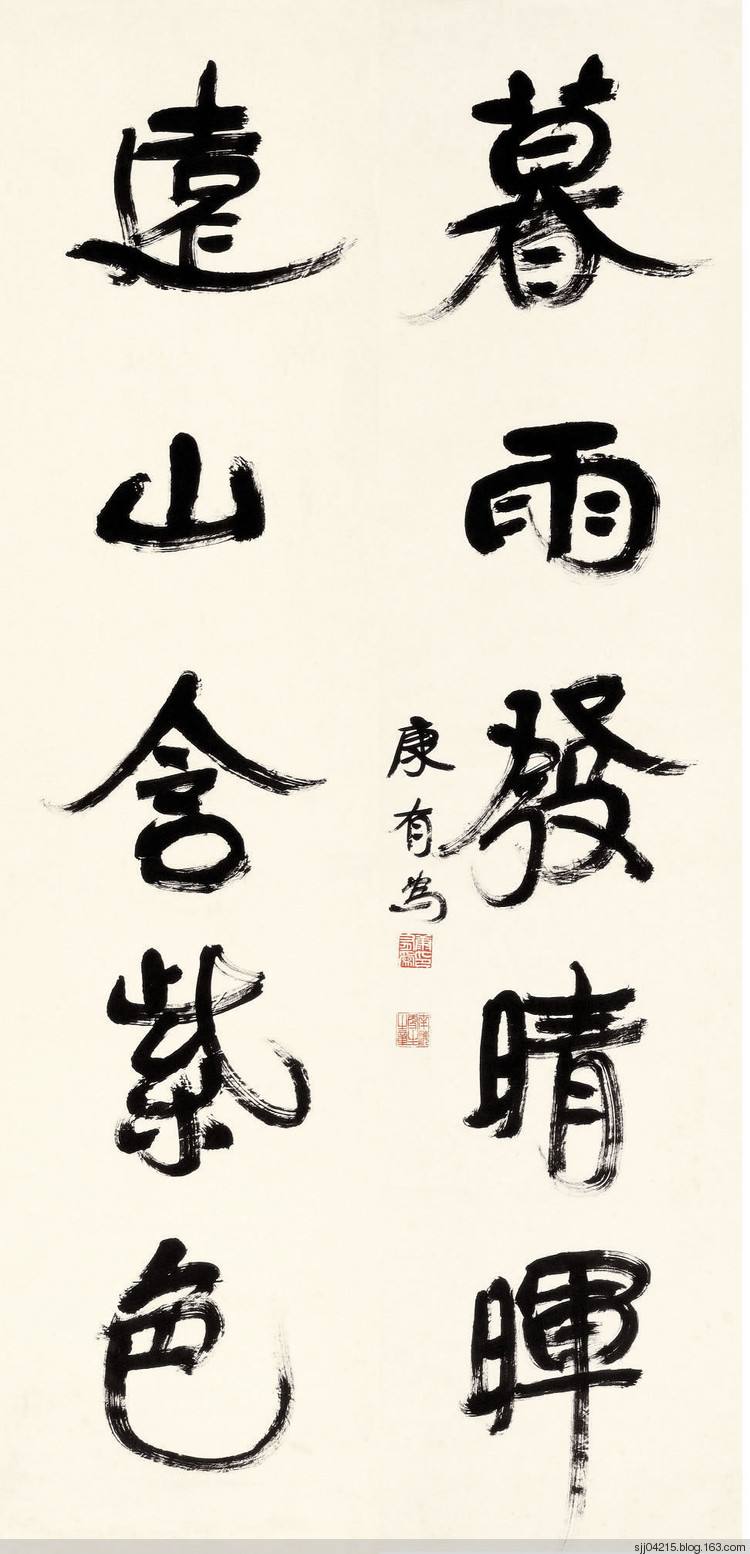 暮雨發晴暉
遠山含紫色
康有為
康印有為
sjj04215.blog.163.com